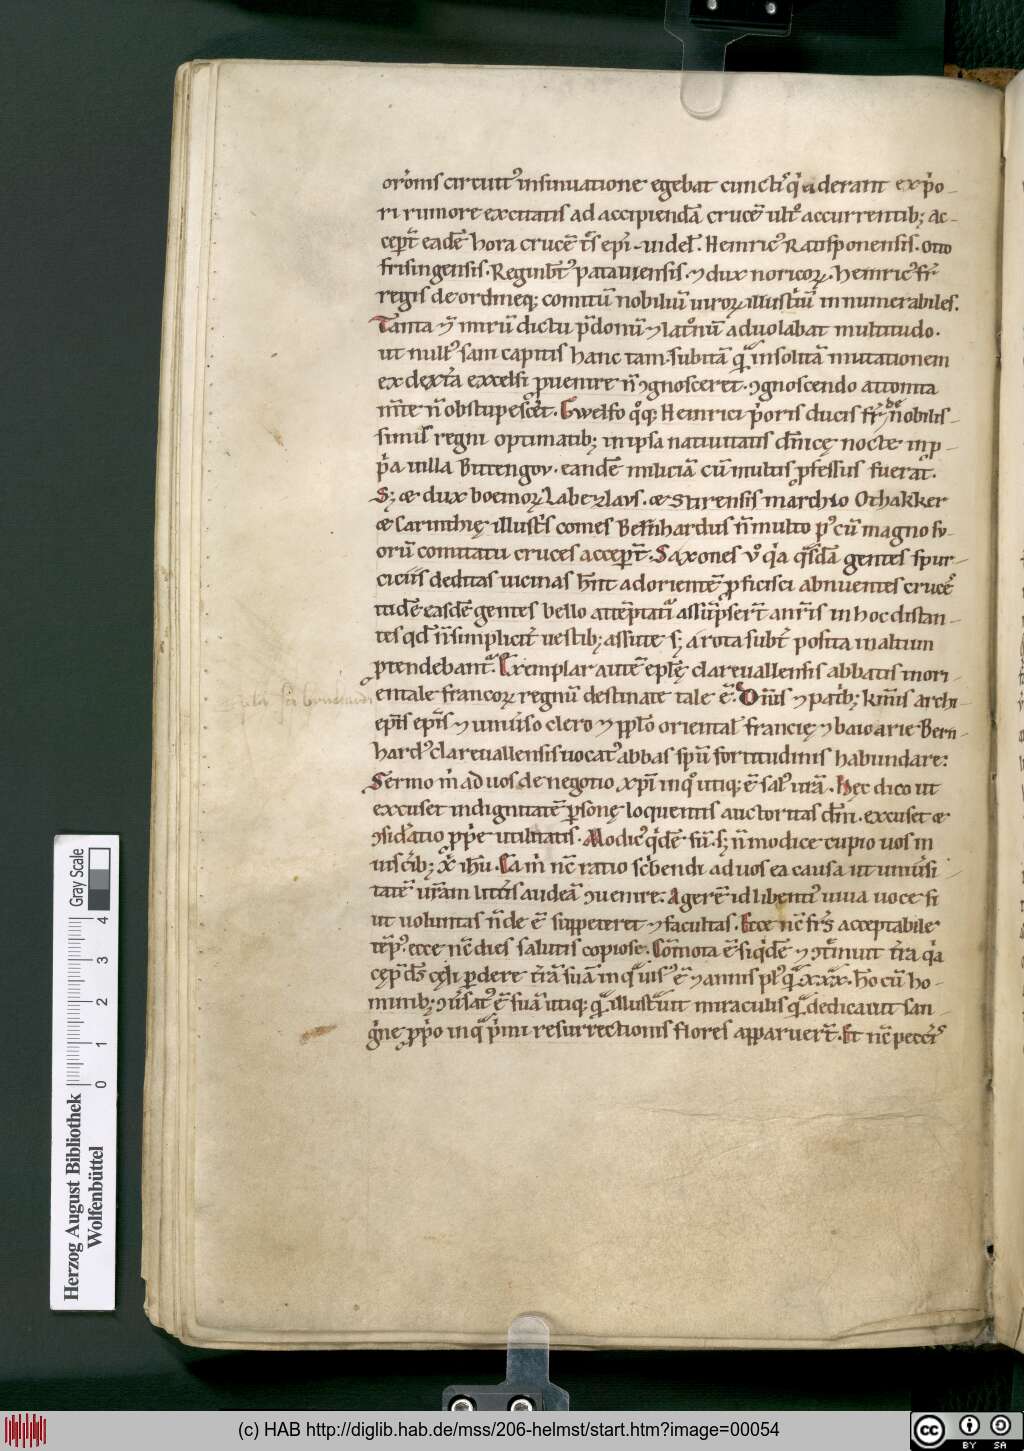 orōnis circuitꝰ insinuatione egebat cunctis q̇ aderant ex p̓o-
ri rumore excitatis ad accipiendā crucē ultˢ accurrentibꝫ; Ac-
cep̄t eadē hora crucē tˢ ep̄i. uidelꝫ. Heinricꝰ Ratisponensis. Otto
frisingensis. Reginb̄tꝰ patauiensis. ⁊ dux noricoꝝ. Heinricꝰ fr̄
regis de ordineqꝫ comitū nobiliū uiroꝝ illustriū innumerabiles.
Tanta ⁊̄ mirū dictu p̄donū ⁊ latˢnū aduolabat multitudo.
ut nullꝰ sani capitis hanc tam subitā quā insolitā mutationem
ex dext̄a excelsi ꝓuenire n̄ ꝯgnosceret. ꝯgnoscendo attonita
m̄te n̄ obstupescet. Gwelfo qˢqꝫ Heinrici p̓oris ducis fr̄ ⁊ de nobilis-
simis regni optimatibꝫ in ipsa natiuitatis dn̄icę nocte in ꝓ-
p̓a uilla Bitengov. eandē miliciā cū multis ꝓfessus fuerat.
Sꝫ æ dux boemoꝝ Labezlavs. æ Stirensis marchio Othakker
æ Carinthię illustˢ comes Bern̄hardus n̄ multo pꝰ cū magno su-
orū comitatu cruces accep̄t. Saxones vˢ q̓a q̄sdā gentes spur-
ciciis deditas uicinas hn̄t ad orientē ꝓficisci abnuentes crucē
itidē easdē gentes bello attēptatuˢ assūpser̄t a nr̄is in hoc distan-
tes qd̄ n̄ simplicit̄ uestibꝫ assute sꝫ a rota subt̄ posita in altum
ꝓtendebantꝰ. Exemplar autē ep̄lę clareuallensis abbatis in ori-
entale francoꝝ regnū destinate tale ē. Dn̄is ⁊ patribꝫ km̄is archi-
ep̄is ep̄is ⁊ uniu̓so clero ⁊ pp̄lo oriental̄ francię ⁊ baioarie Bern-
hardꝰ clareuallensis uocatꝰ abbas sp̄ū fortitudinis habundare:
Sermo m̓ ad uos de negotio xp̄i in qˢ utiqꝫ ē salꝰ ura̅. Hęc dico ut
excuset indignitatē ꝑsonę loquentis auctoritas dn̄i. excuset æ
ꝯsideratio ꝓp̓e utilitatis. Modicꝰ q̓dē sū. sꝫ n̄ modice cupio uos in
uiscibꝫ x̄ ihū. Ea m̓ nc̄ ratio scbendi ad uos ea causa ut uniu̓si-
tatē ur̄am litt̄is audeā ꝯuenire. Agerē id libentiꝰ uiua uoce si
ut uoluntas n̄ de ē suppeteret ⁊ facultas. Ecce nc̄ fr̄s acceptabile
tēpꝰ ecce nc̄ dies salutis copiose. Cōmota ē siq̓dē ⁊ ꝯtˢmuit t̄ra q̓a
cęp̄ ds̄ cęli ꝑdere t̄rā suā in quā uisꝰ ē ⁊ annis plꝰ quā xxx. hō cū ho-
minibꝫ ꝯu̓satꝰ ē suā utiqꝫ quā illustˢuit miraculis quā dedicauit san-
guine ꝓp̓o in q̄ p̓mi resurrectionis flores apparuer̄t. Et nc̄ peccˢ
(c) HAB http://diglib.hab.de/mss/206-helmst/start.htm?image=00054
Herzog August Bibliothek
Wolfenbüttel
Gray Scale
0 1 2 3 4
cc BY SA